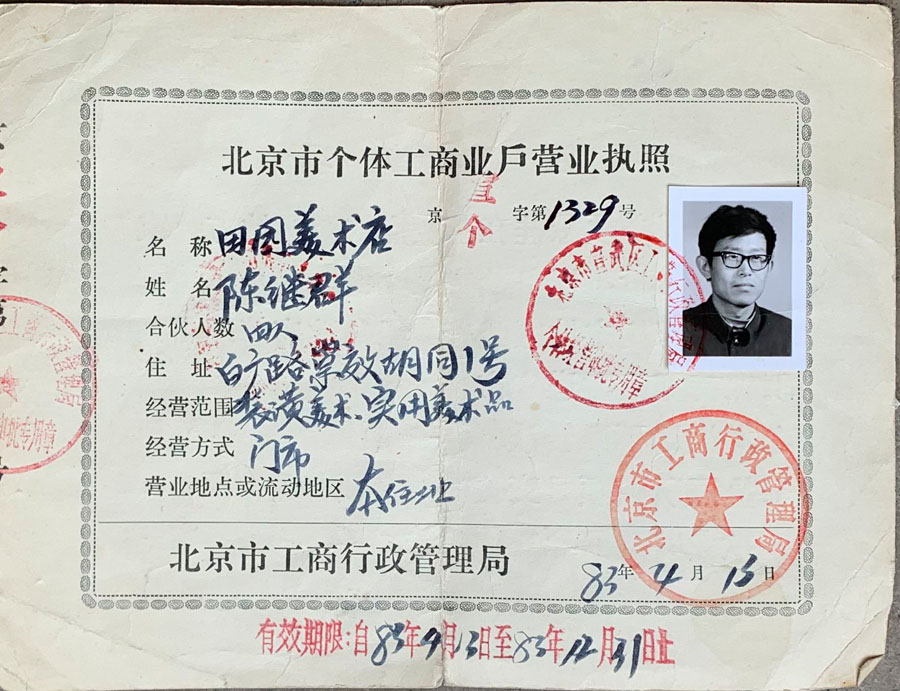 北京市个体工商业戶营业执照
京宣个字第1329号
名 称 田园美术店
姓 名 陈继群
合伙人数 四人
住 址 白广路崇效胡同1号
经营范围 装潢美术、实用美术品
经营方式 门市
营业地点或流动地区 本住址
北京市工商行政管理局
83年4月13日
北京市工商行政管理局
北京市宣武区工
有效期限:自83年4月13日至83年12月31日止